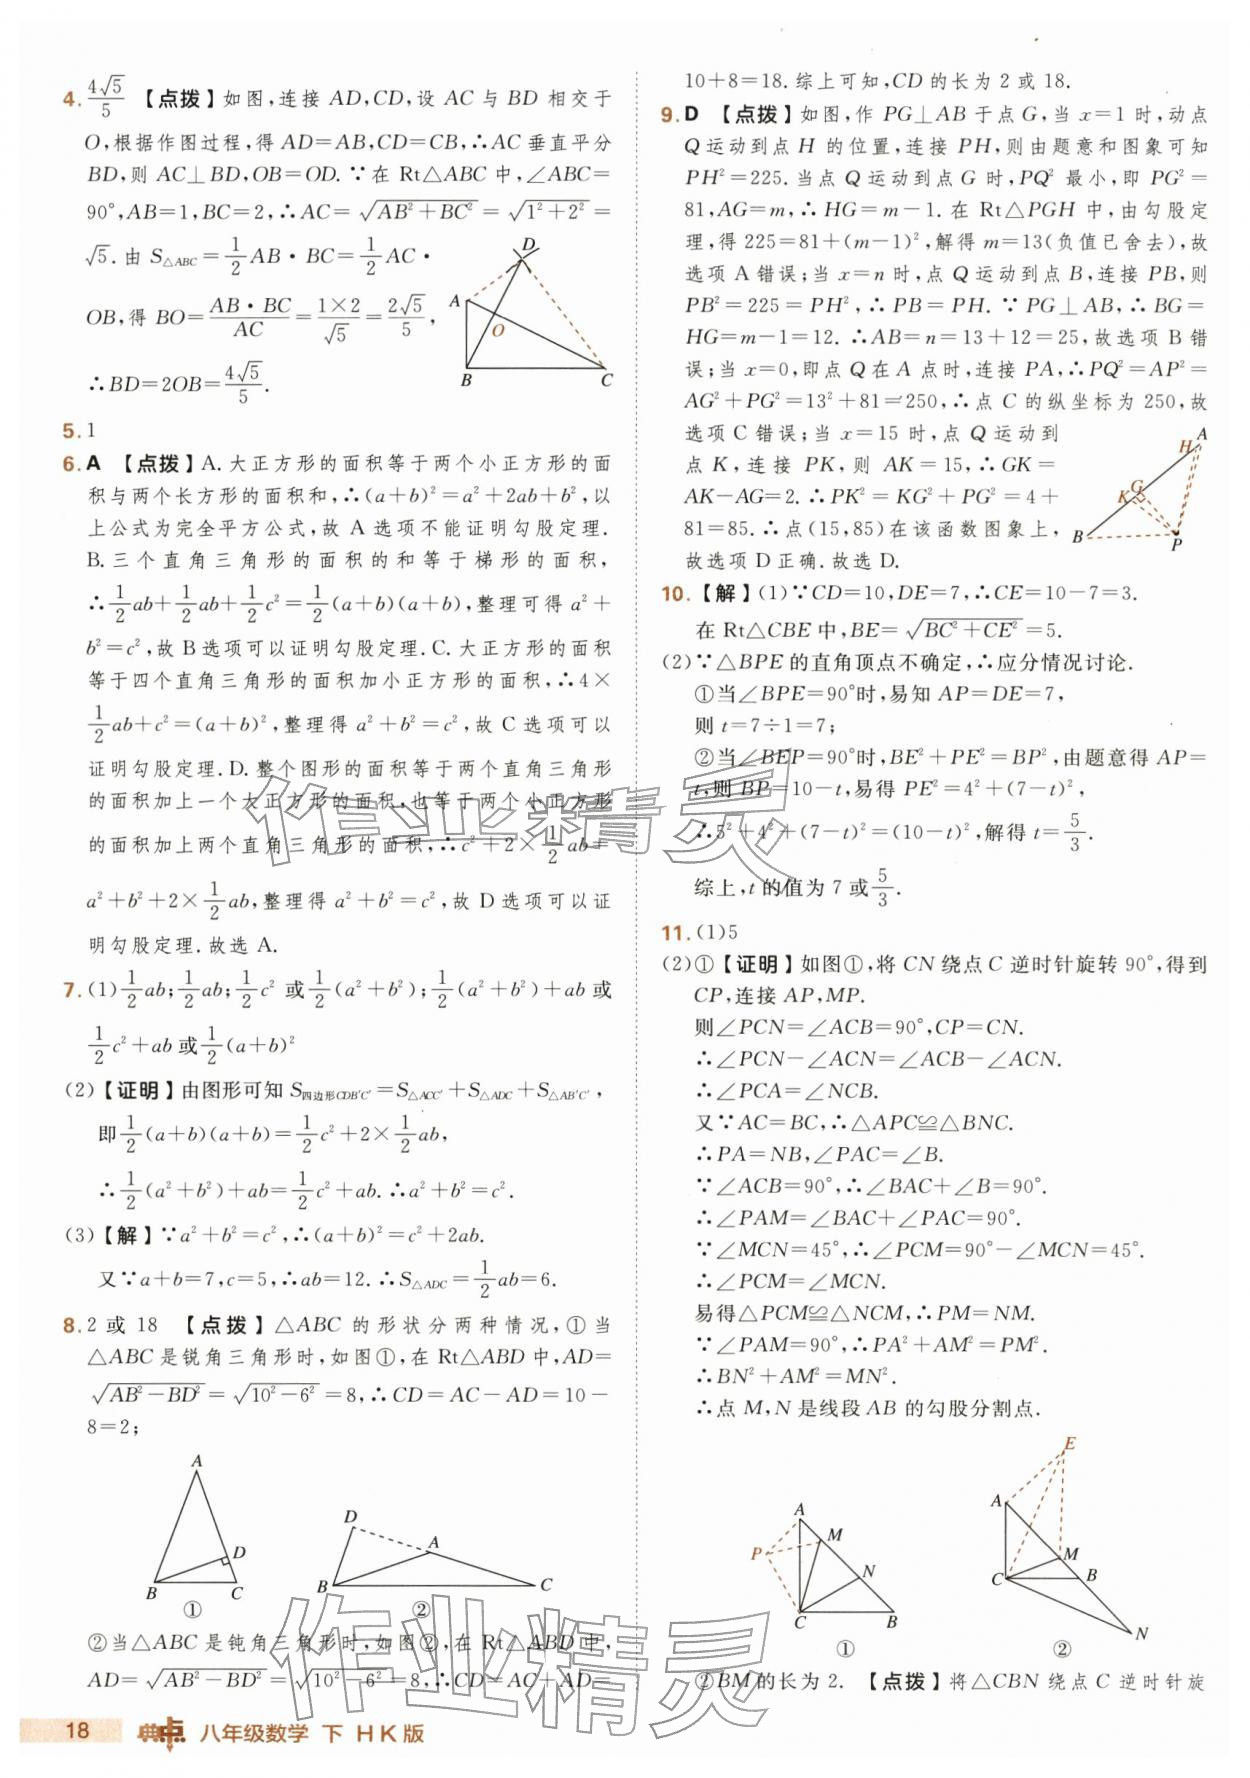 4. 4√5/5 【点拨】如图,连接 AD,CD,设 AC 与 BD 相交于
O,根据作图过程,得 AD=AB,CD=CB,∴AC 垂直平分
BD,则 AC⊥BD,OB=OD. ∵在 Rt△ABC 中,∠ABC=
90°,AB=1,BC=2,∴AC=√(AB²+BC²)=√(1²+2²)=
√5. 由 S△ABC=1/2 AB·BC=1/2 AC·
OB,得 BO=AB·BC/AC=1×2/√5=2√5/5,
∴BD=2OB=4√5/5.
D
A
O
B
C
5. 1
6. A 【点拨】A. 大正方形的面积等于两个小正方形的面
积与两个长方形的面积和,∴(a+b)²=a²+2ab+b²,以
上公式为完全平方公式,故 A 选项不能证明勾股定理.
B. 三个直角三角形的面积的和等于梯形的面积,
∴1/2ab+1/2ab+1/2c²=1/2(a+b)(a+b),整理可得 a²+
b²=c²,故 B 选项可以证明勾股定理. C. 大正方形的面积
等于四个直角三角形的面积加小正方形的面积,∴4×
1/2ab+c²=(a+b)²,整理得 a²+b²=c²,故 C 选项可以
证明勾股定理. D. 整个图形的面积等于两个直角三角形
的面积加上一个大正方形的面积,也等于两个小正方形
的面积加上两个直角三角形的面积,∴c²+2×1/2ab=
a²+b²+2×1/2ab,整理得 a²+b²=c²,故 D 选项可以证
明勾股定理. 故选 A.
7. (1)1/2ab;1/2ab;1/2c² 或1/2(a²+b²);1/2(a²+b²)+ab或
1/2c²+ab或1/2(a+b)²
(2)【证明】由图形可知 S四边形CDB′C′=S△ACC′+S△ADC+S△AB′C′,
即1/2(a+b)(a+b)=1/2c²+2×1/2ab,
∴1/2(a²+b²)+ab=1/2c²+ab. ∴a²+b²=c².
(3)【解】∵a²+b²=c²,∴(a+b)²=c²+2ab.
又∵a+b=7,c=5,∴ab=12. ∴S△ADC=1/2ab=6.
8. 2 或 18 【点拨】△ABC 的形状分两种情况,①当
△ABC 是锐角三角形时,如图①,在 Rt△ABD 中,AD=
√(AB²-BD²)=√(10²-6²)=8,∴CD=AC-AD=10-
8=2;
A
D
B
C
①
D
A
B
C
②
②当△ABC 是钝角三角形时,如图②,在 Rt△ABD 中,
AD=√(AB²-BD²)=√(10²-6²)=8,∴CD=AC+AD=
10+8=18. 综上可知,CD 的长为 2 或 18.
9. D 【点拨】如图,作 PG⊥AB 于点 G,当 x=1 时,动点
Q 运动到点 H 的位置,连接 PH,则由题意和图象可知
PH²=225. 当点 Q 运动到点 G 时,PQ² 最小,即 PG²=
81,AG=m,∴HG=m-1. 在 Rt△PGH 中,由勾股定
理,得 225=81+(m-1)²,解得 m=13(负值已舍去),故
选项 A 错误;当 x=n 时,点 Q 运动到点 B,连接 PB,则
PB²=225=PH²,∴PB=PH. ∵PG⊥AB,∴BG=
HG=m-1=12. ∴AB=n=13+12=25,故选项 B 错
误;当 x=0,即点 Q 在 A 点时,连接 PA,∴PQ²=AP²=
AG²+PG²=13²+81=250,∴点 C 的纵坐标为 250,故
选项 C 错误;当 x=15 时,点 Q 运动到
点 K,连接 PK,则 AK=15,∴GK=
AK-AG=2. ∴PK²=KG²+PG²=4+
81=85. ∴点(15,85)在该函数图象上,
故选项 D 正确. 故选 D.
A
H
G
K
B
P
10.【解】(1)∵CD=10,DE=7,∴CE=10-7=3.
在 Rt△CBE 中,BE=√(BC²+CE²)=5.
(2)∵△BPE 的直角顶点不确定,∴应分情况讨论.
①当∠BPE=90°时,易知 AP=DE=7,
则 t=7÷1=7;
②当∠BEP=90°时,BE²+PE²=BP²,由题意得 AP=
t,则 BP=10-t,易得 PE²=4²+(7-t)²,
∴5²+4²+(7-t)²=(10-t)²,解得 t=5/3.
综上,t 的值为 7 或5/3.
11. (1)5
(2)①【证明】如图①,将 CN 绕点 C 逆时针旋转 90°,得到
CP,连接 AP,MP.
则∠PCN=∠ACB=90°,CP=CN.
∴∠PCN-∠ACN=∠ACB-∠ACN.
∴∠PCA=∠NCB.
又∵AC=BC,∴△APC≌△BNC.
∴PA=NB,∠PAC=∠B.
∵∠ACB=90°,∴∠BAC+∠B=90°.
∴∠PAM=∠BAC+∠PAC=90°.
∵∠MCN=45°,∴∠PCM=90°-∠MCN=45°.
∴∠PCM=∠MCN.
易得△PCM≌△NCM,∴PM=NM.
∵∠PAM=90°,∴PA²+AM²=PM².
∴BN²+AM²=MN².
∴点 M,N 是线段 AB 的勾股分割点.
A
M
P
N
C
B
①
E
A
M
C
B
N
②
②BM 的长为 2. 【点拨】将△CBN 绕点 C 逆时针旋
作业精灵
作业精灵
18 典点 八年级数学 下 HK版